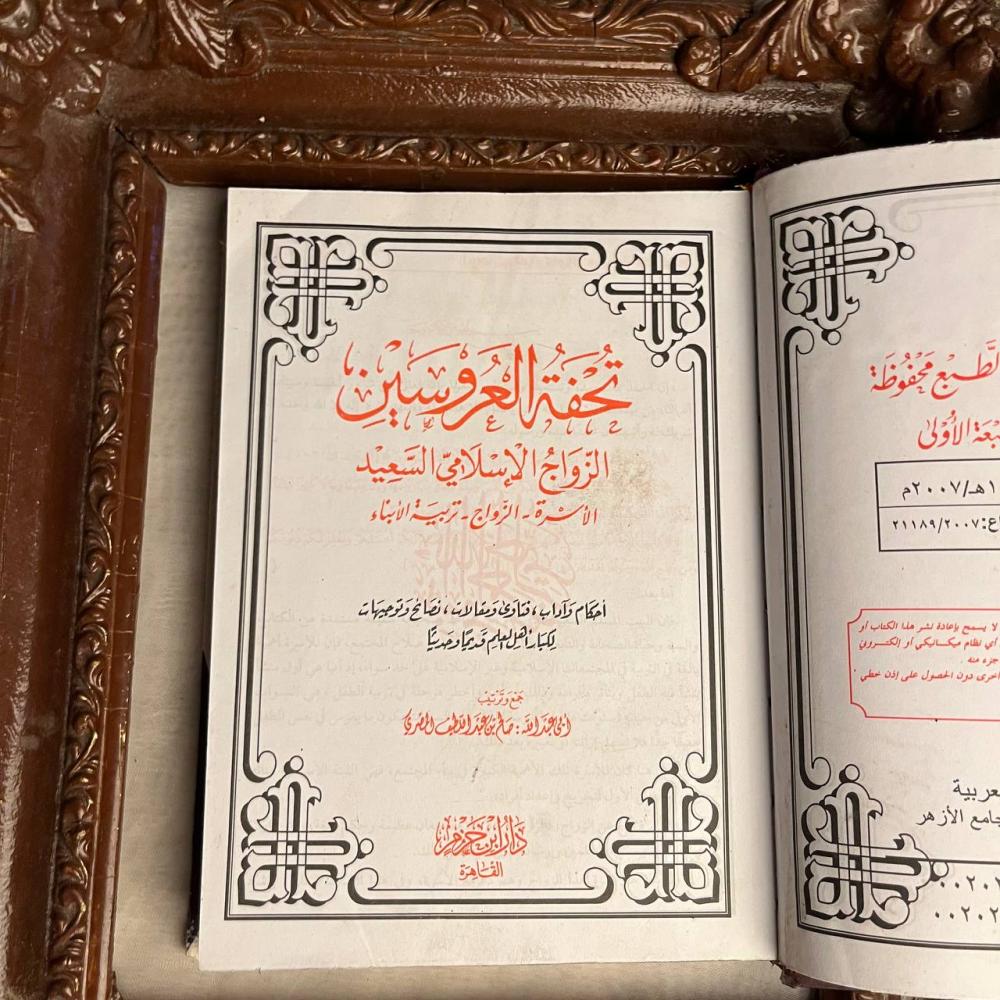 تُحْفَةُ العَرُوسَيْنِ
الزَّوَاجُ الإِسْلَامِيُّ السَّعِيد
الأسرة - الزَّواج - تربية الأبناء
أحكام وآداب، فتاوى ومقالات، نصائح وتوجيهات
لكبار أهل العلم قديمًا وحديثًا
جمع وترتيب
أبي عبد الله: صالح بن عبد اللطيف المصري
دار ابن حزم
القاهرة
الطَّبع مَحْفُوظَة
الأُولَى
هـ/٢٠٠٧م
٢١١٨٩/٢٠٠٧
لا يسمح بإعادة نشر هذا الكتاب أو
أي نظام ميكانيكي أو إلكتروني
جزء منه
أخرى دون الحصول على إذن خطي
الأزهر